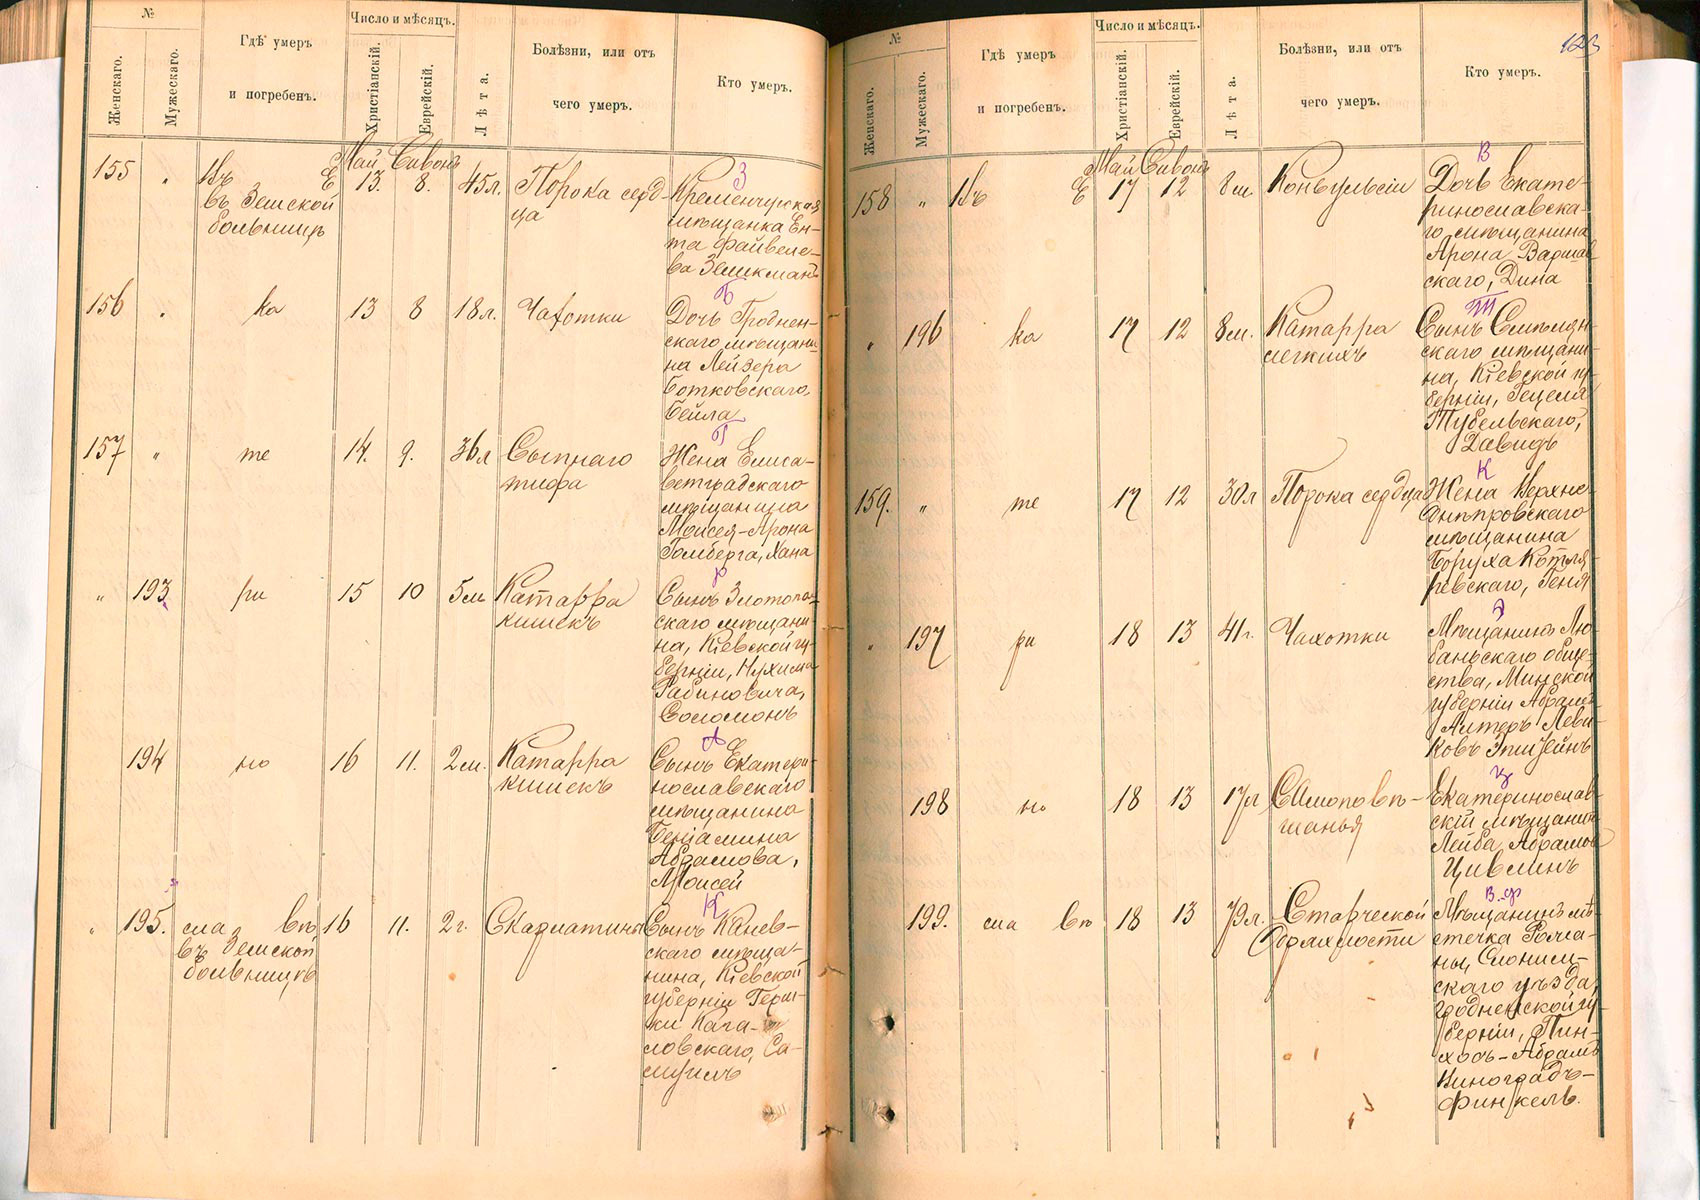 №
Женскаго.
Мужескаго.
Гдѣ умеръ
и погребенъ.
Число и мѣсяцъ.
Христіанскій.
Еврейскій.
Лѣта.
Болѣзни, или отъ
чего умеръ.
Кто умеръ.
Май Сивонъ
155 " Въ Е 13. 8. 45л. Порока серд-
ца
въ Земской
больницѣ
З
Кременчугская
мѣщанка Ен-
та Файвеле-
ва Зеликманъ
156 " ка 13 8 18л. Чахотки
Б
Дочь Гроднен-
скаго мѣщани-
на Лейзера
Ботковскаго,
Бейла
157 " те 14. 9. 36л Сыпнаго
тифа
Г
Жена Елиса-
ветградскаго
мѣщанина
Моисея-Арона
Гомберга, Хана
" 193 ри 15 10 5м Катарра
кишекъ
Р
Сынъ Златопол-
скаго мѣщани-
на, Кіевской гу-
берніи, Нухима
Рабиновича,
Соломонъ
194 но 16 11. 2м. Катарра
кишекъ
А
Сынъ Екатери-
нославскаго
мѣщанина
Беніамина
Абрамова,
Моисей
" 195. сла вѣ 16 11. 2г. Скарлатины
въ Земской
больницѣ
К
Сынъ Канев-
скаго мѣща-
нина, Кіевской
губерніи Герш-
ки Кага-
ловскаго, Са-
муилъ
123
№
Женскаго.
Мужескаго.
Гдѣ умеръ
и погребенъ.
Число и мѣсяцъ.
Христіанскій.
Еврейскій.
Лѣта.
Болѣзни, или отъ
чего умеръ.
Кто умеръ.
Май Сивонъ
158 " Въ Е 17 12 8м. Конвульсіи
В
Дочь Екате-
ринославска-
го мѣщанина
Арона Варшав-
скаго, Дина
" 196 ка 17 12 8м. Катарра
легкихъ
Т
Сынъ Смѣлян-
скаго мѣщани-
на, Кіевской гу-
берніи, Гецеля
Тубельскаго,
Давидъ
159. " те 17 12 30л Порока сердца
К
Жена Верхне-
днѣпровскаго
мѣщанина
Боруха Котля-
ревскаго, Геня
" 197 ри 18 13 41г. Чахотки
Э
Мѣщанинъ Лю-
баньскаго обще-
ства, Минской
губерніи Абрамъ
Алтеръ Леви-
ковъ Эпштейнъ
198 но 18 13 17л Самоповѣ-
шанья
Ц
Екатеринослав-
скій мѣщанинъ
Лейба Абрамов
Цивлинъ
199. сла вѣ 18 13 79л. Старческой
дряхлости
В. Ф
Мѣщанинъ мѣ-
стечка Рома-
ны, Слоним-
скаго уѣзда,
Гродненской гу-
берніи, Пин-
хосъ-Абрамъ
Виноградъ-
Финкель.